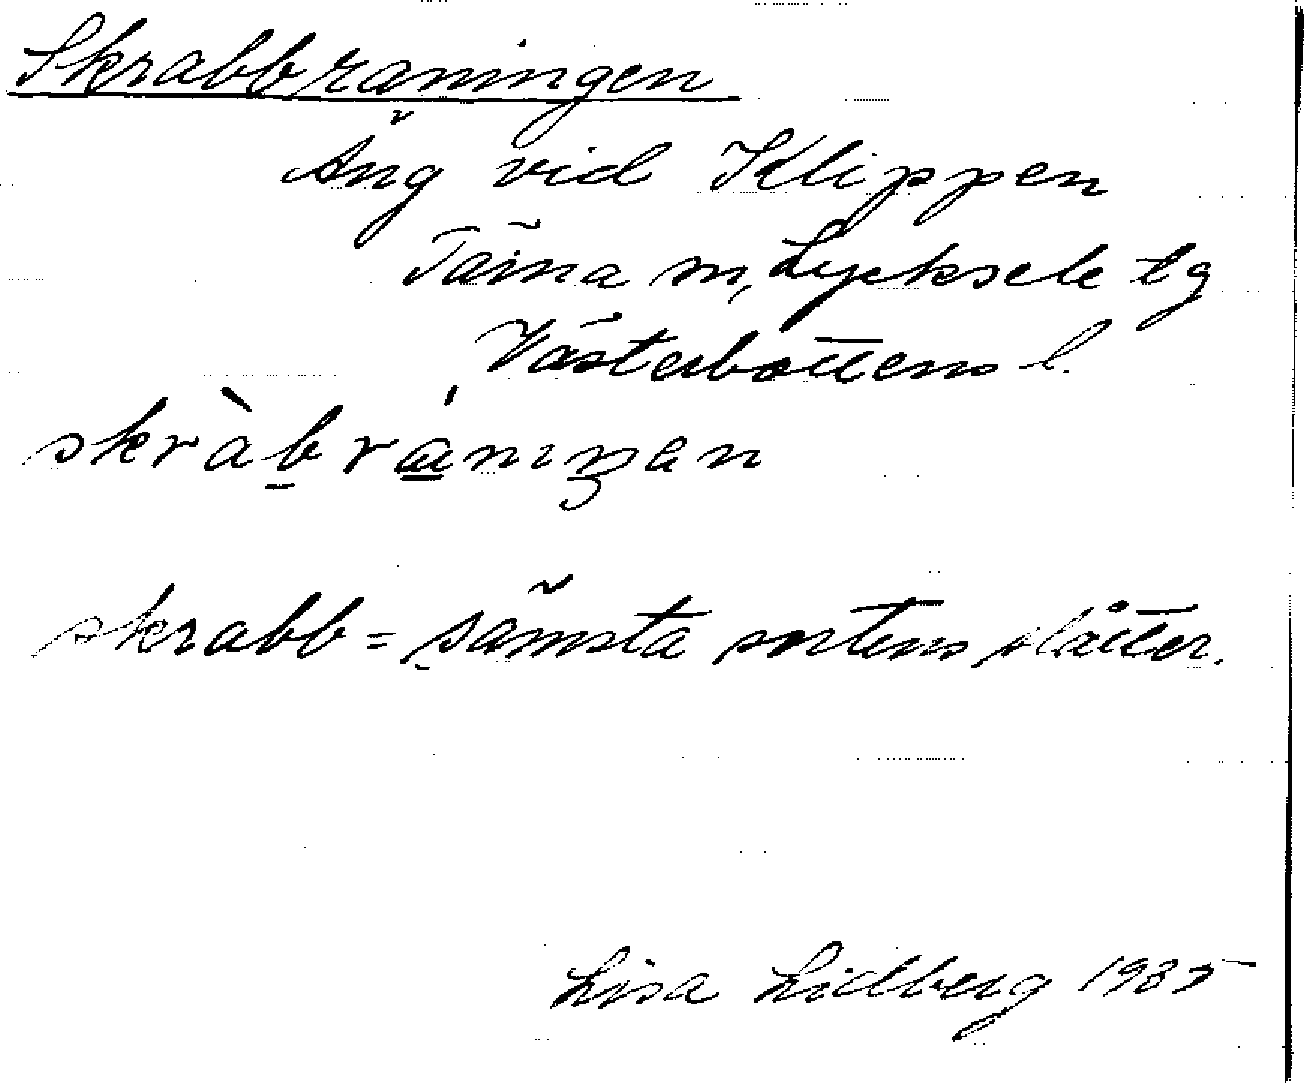 Skrabbraningen
Äng vid Klippen
Tärna sn, Lycksele lg
Västerbottens l.
skràbránıŋen
skrabb = sämsta sortens slåtter.
Lisa Lidberg 1935